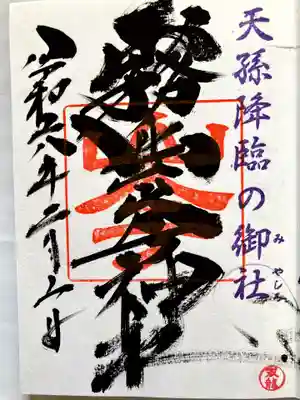 天孫降臨の御社
みやしろ
霧島岑神社
令和六年二月六日